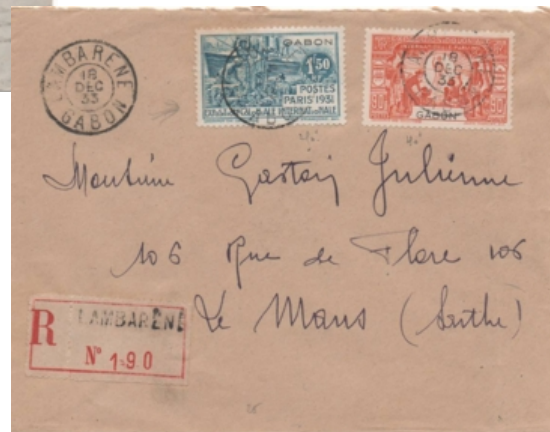 LAMBARÉNÉ
18
DEC
33
GABON
GABON
1F50
POSTES
PARIS 1931
EXPOSITION COLONIALE INTERNATIONALE
18
DEC
33
90c
90c
GABON
Monsieur Gaston Julienne
106 Rue de Flore 106
Le Mans (Sarthe)
R
LAMBARÉNÉ
N° 190